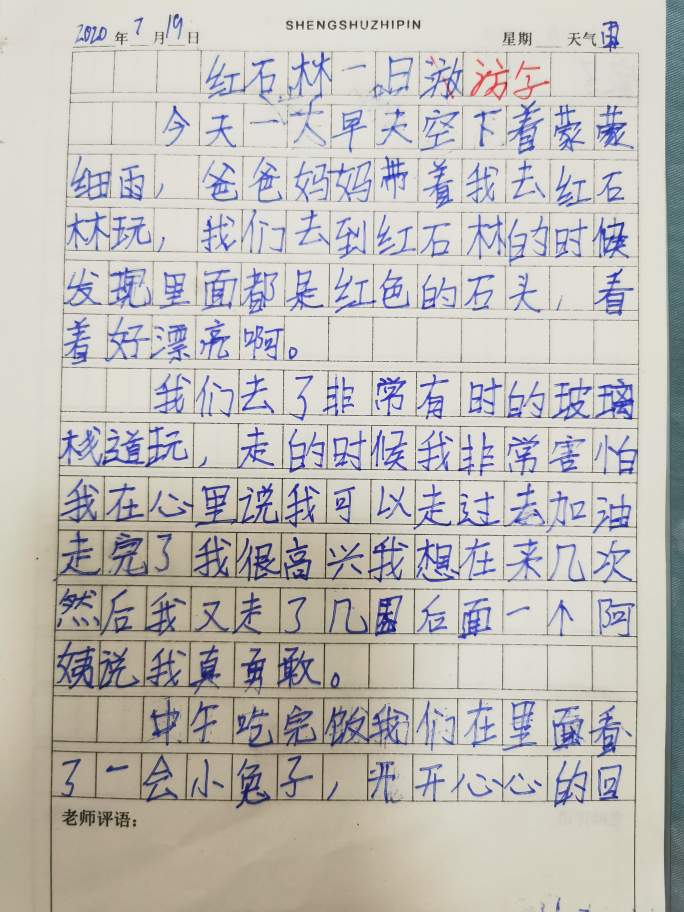 SHENGSHUZHIPIN
2020年7月19日 星期 天气雨
红石林一日游 游字
今天一大早天空下着蒙蒙
细雨，爸爸妈妈带着我去红石
林玩，我们去到红石林的时候
发现里面都是红色的石头，看
着好漂亮啊。
我们去了非常有时的玻璃
栈道玩，走的时候我非常害怕
我在心里说我可以走过去加油
走完了我很高兴我想在来几次
然后我又走了几圈后面一个阿
姨说我真勇敢。
中午吃完饭我们在里面看
了一会小兔子，开开心心的回
老师评语：